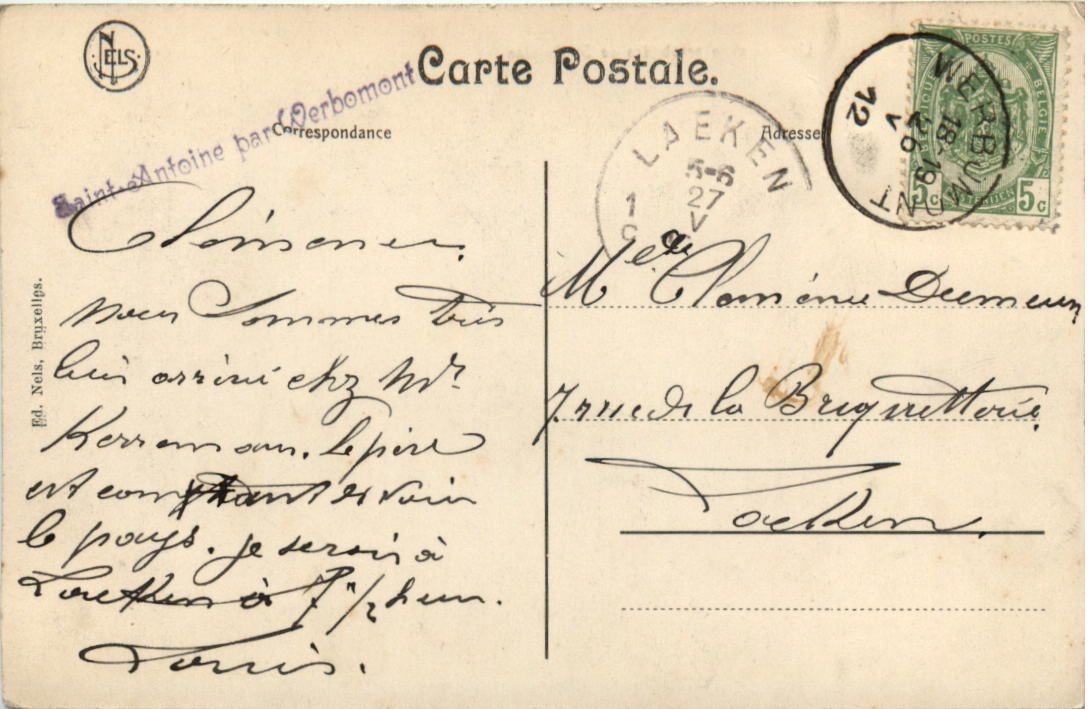 NELS
Carte Postale.
Saint-Antoine par Werbomont
Correspondance
Adresse
LAEKEN
5-6
27
V
1
WERBOMONT
18-19
26
V
12
POSTES
BELGIQUE BELGIË
5c 5c
Ed. Nels, Bruxelles.
nous sommes très
bien arrivé chez Mr
Kerremans. le père
est comptant de voir
le pays. je serai à
Laeken à 7 1/2 heur.
Louis.
Melle Clémence
7 rue de la Briquetterie
Laeken.